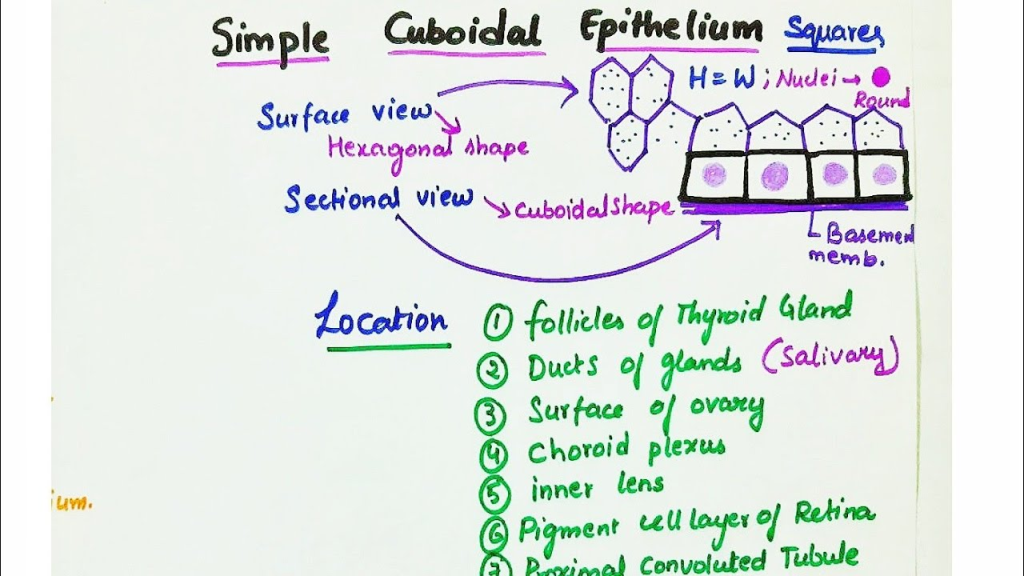 Simple Cuboidal Epithelium Squares
H = W ; Nuclei →
Round
Surface view
Hexagonal shape
Sectional view
Cuboidal shape
Basement
memb.
Location
① follicles of Thyroid Gland
② Ducts of glands (Salivary)
③ Surface of ovary
④ Choroid plexus
⑤ inner lens
⑥ Pigment cell layer of Retina
⑦ Proximal Convoluted Tubule
ium.